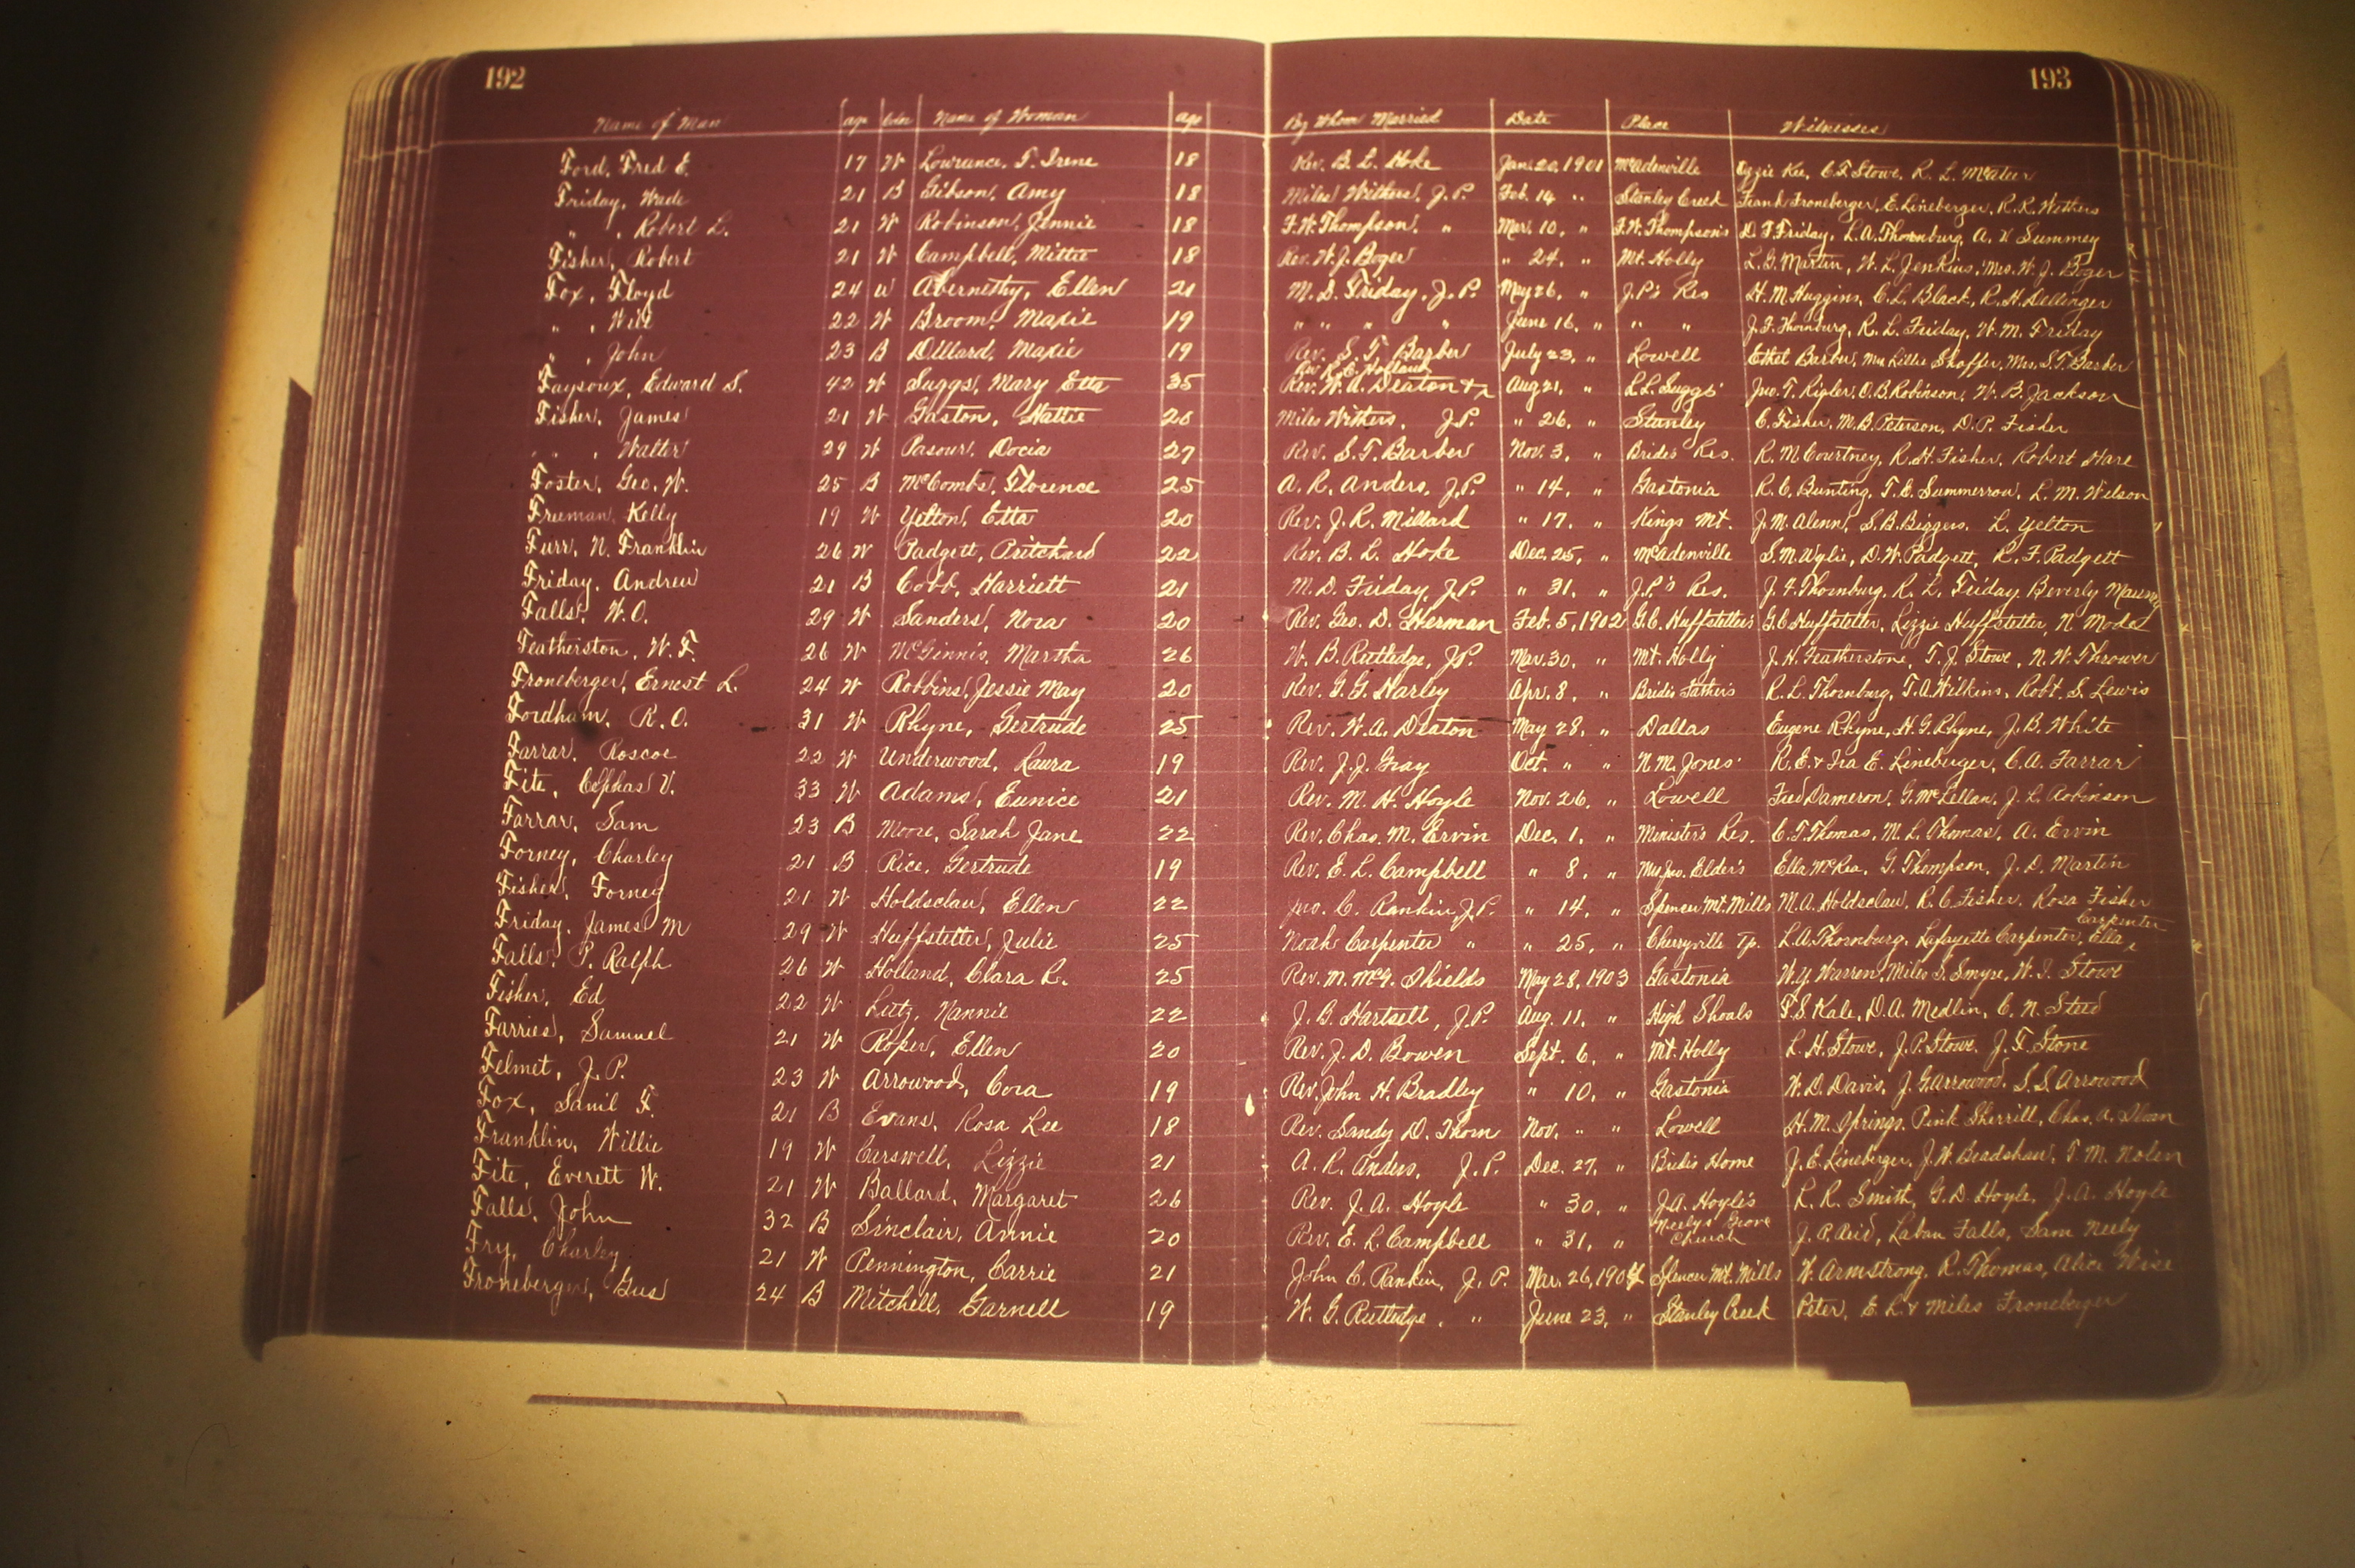 192 193
Name of Man age Color Name of Woman age By Whom Married Date Place Witnesses
Ford, Fred E. 17 W Lowrance, T. Irene 18 Rev. B. L. Hoke Jan. 20, 1901 McAdenville Ozzie Kee, C. F. Stowe, R. L. McAteer
Friday, Wade 21 B Gibson, Amy 18 Miles Withers, J. P. Feb. 14 " Stanley Creek Frank Froneberger, E. Lineberger, R. R. Withers
" , Robert L. 21 W Robinson, Jennie 18 F. W. Thompson, " Mar. 10, " F. W. Thompson's D. F. Friday, L. A. Thornburg, A. V. Summey
Fisher, Robert 21 W Campbell, Mittie 18 Rev. W. J. Boger " 24, " Mt. Holly L. G. Martin, W. L. Jenkins, Mrs. W. J. Boger
Fox, Floyd 24 W Abernethy, Ellen 21 M. D. Friday, J. P. May 26, " J. P's Res H. M. Huggins, C. L. Black, R. H. Dellinger
" , Will 22 W Broom, Maxie 19 " " " " June 16, " " " J. F. Thornburg, R. L. Friday, W. M. Friday
" , John 23 B Dillard, Maxie 19 Rev. S. T. Barber July 23, " Lowell Ethel Barber, Mrs Lillie Shaffer, Mrs. S. T. Barber
Faysoux, Edward S. 42 W Suggs, Mary Etta 35 Rev. W. A. Deaton & Rev R. C. Holland Aug 21, " L. L. Suggs' Jno. T. Rigler, O. B. Robinson, W. B. Jackson
Fisher, James 21 W Gaston, Hattie 20 Miles Withers, J. P. " 26, " Stanley C. Fisher, M. B. Peterson, D. P. Fisher
" , Walter 29 W Pasour, Docia 27 Rev. S. T. Barber Nov. 3, " Brides Res. R. M Courtney, R. H. Fisher, Robert Hare
Foster, Geo. W. 25 B McCombs, Florence 25 A. R. Anders, J. P. " 14, " Gastonia R. C. Bunting, T. E. Summerrow, L. M. Wilson
Freeman, Kelly 19 W Yelton, Etta 20 Rev. J. R. Millard " 17. " Kings Mt. J. M. Alenn, S. B. Biggers. L. Yelton
Furr, N. Franklin 26 W Padgett, Pritchard 22 Rev. B. L. Hoke Dec. 25, " McAdenville S. M. Wylie, D. W. Padgett, R. F. Padgett
Friday, Andrew 21 B Cobb, Harriett 21 M. D. Friday, J. P. " 31. " J. P.'s Res. J. F. Thornburg, R. L. Friday, Beverly Mauney
Falls, W. O. 29 W Sanders, Nora 20 Rev. Geo. D. Herman Feb. 5, 1902 G. C. Huffstetler's G. C Huffstetler, Lizzie Huffstetler, N Mode
Featherston, W. F. 26 W McGinnis, Martha 26 W. B. Rutledge, J. P. Mar. 30, " Mt. Holly J. H. Featherstone, T. J. Stowe, N. W. Thrower
Froneberger, Ernest L. 24 W Robbins, Jessie May 20 Rev. G. G. Harley Apr. 8, " Brides Fathers R. L. Thornburg, T. A. Wilkins, Robt. S. Lewis
Fordham, R. O. 31 W Rhyne, Gertrude 25 Rev. W. A. Deaton May 28, " Dallas Eugene Rhyne, H. G. Rhyne, J. B. White
Farrar, Roscoe 22 W Underwood, Laura 19 Rev. J. J. Gray Oct. " " N. M. Jones' R. E. & Ira E. Lineberger, C. A. Farrar
Fite, Cephas V. 33 W Adams, Eunice 21 Rev. M. H. Hoyle Nov. 26, " Lowell Fred Dameron, G. McLellan, J. L. Robinson
Farrar, Sam 23 B Moore, Sarah Jane 22 Rev. Chas. M. Ervin Dec. 1, " Minister's Res. C. T. Thomas, M. L. Thomas, A. Ervin
Forney, Charley 21 B Rice, Gertrude 19 Rev. E. L. Campbell " 8, " Mrs Jno. Elder's Ella McRea, G. Thompson, J. D. Martin
Fisher, Forney 21 W Holdsclaw, Ellen 22 Jno. C. Rankin, J. P. " 14, " Spencer Mt. Mills M. A. Holdsclaw, R. C. Fisher, Rosa Fisher
Friday, James M 29 W Huffstetler, Julie 25 Noah Carpenter " " 25, " Cherryville Tp. L. A. Thornburg, Lafayette Carpenter, Ella Carpenter
Falls, P. Ralph 26 W Holland, Clara R. 25 Rev. M. McG. Shields May 28, 1903 Gastonia W. Y. Warren, Miles S. Smyre, W. I. Stowe
Fisher, Ed 22 W Lutz, Nannie 22 J. B. Hartsell, J. P. Aug. 11, " High Shoals T. S. Kale, D. A. Medlin, C. N. Steed
Farries, Samuel 21 W Roper, Ellen 20 Rev. J. D. Bowen Sept. 6, " Mt. Holly L. H. Stowe, J. P. Stowe, J. F. Stone
Felmet, J. P. 23 W Arrowood, Cora 19 Rev. John H. Bradley " 10, " Gastonia W. D. Davis, J. G. Arrowood, S. S. Arrowood
Fox, Sanil F. 21 B Evans, Rosa Lee 18 Rev. Sandy D. Thorn Nov. " " Lowell H. M. Springs, Pink Sherrill, Chas. A. Sloan
Franklin, Willie 19 W Carswell, Lizzie 21 A. R. Anders, J. P. Dec. 27, " Brides Home J. E. Lineberger, J. W. Beadshaw, T. M. Nolen
Fite, Everett W. 21 W Ballard, Margaret 26 Rev. J. A. Hoyle " 30, " J. A. Hoyle's L. R. Smith, G. D. Hoyle, J. A. Hoyle
Falls, John 32 B Sinclair, Annie 20 Rev. E. L. Campbell " 31, " Neelys Grove Church J. P. Reid, Laban Falls, Sam Neely
Fry, Charley 21 W Pennington, Carrie 21 John C. Rankin, J. P. Mar. 26, 1904 Spencer Mt. Mills W. Armstrong, R. Thomas, Alice Wise
Froneberger, Gus 24 B Mitchell, Garnell 19 W. G. Rutledge, " June 23, " Stanley Creek Peter, E. L. & Miles Froneberger